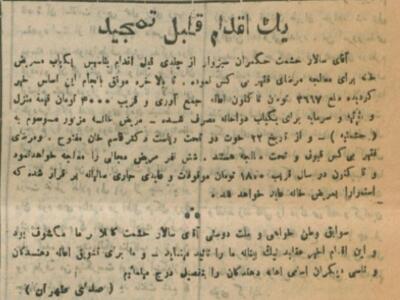 یك اقدام قابل تمجید
آقای سالار حشمت حكمران سبزوار از چندی قبل اقدام بتأسیس یكباب مریض
خانه برای معالجه مرضای فقیر بی كس نموده . تا بالاخره موفق بانجام این اساس خیر
گردیده مبلغ ۳۶۶۷ تومان تا كنون اعانه جمع آوری و قریب ۳۰۰۰ تومان قیمة منزل
و اثاثیه و سرمایه برای یكباب دواخانه مصرف شده ـ مریض خانه مزبور موسوم به
( حشمتیه ) ـ و از تاریخ ۲۲ حوت در تحت ریاست دكتر قاسم خان مفتوح . ومرضای
فقیر بی كس قبول و تحت معالجه هستند . شش نفر مریض مجانی را معالجه خواهد نمود
و تا كنون در سال قریب ۱۸۰۰ تومان موقوفات و عایدی جاری سالیانه بر قرار شده كه
استمراراً بمریض خانه عاید خواهد شد .
سوابق وطن خواهی و ملت دوستی آقای سالار حشمت كاملا بر ما مكشوف بود
و این اقدام اخیر عقاید نیك بنانه ما را تائید مینماید ـ و ما برای تشویق اعانه دهندگان
و تاسی دیگران اسامی اعانه دهندگان را بتفصیل درج مینمائیم
( صدای طهران )